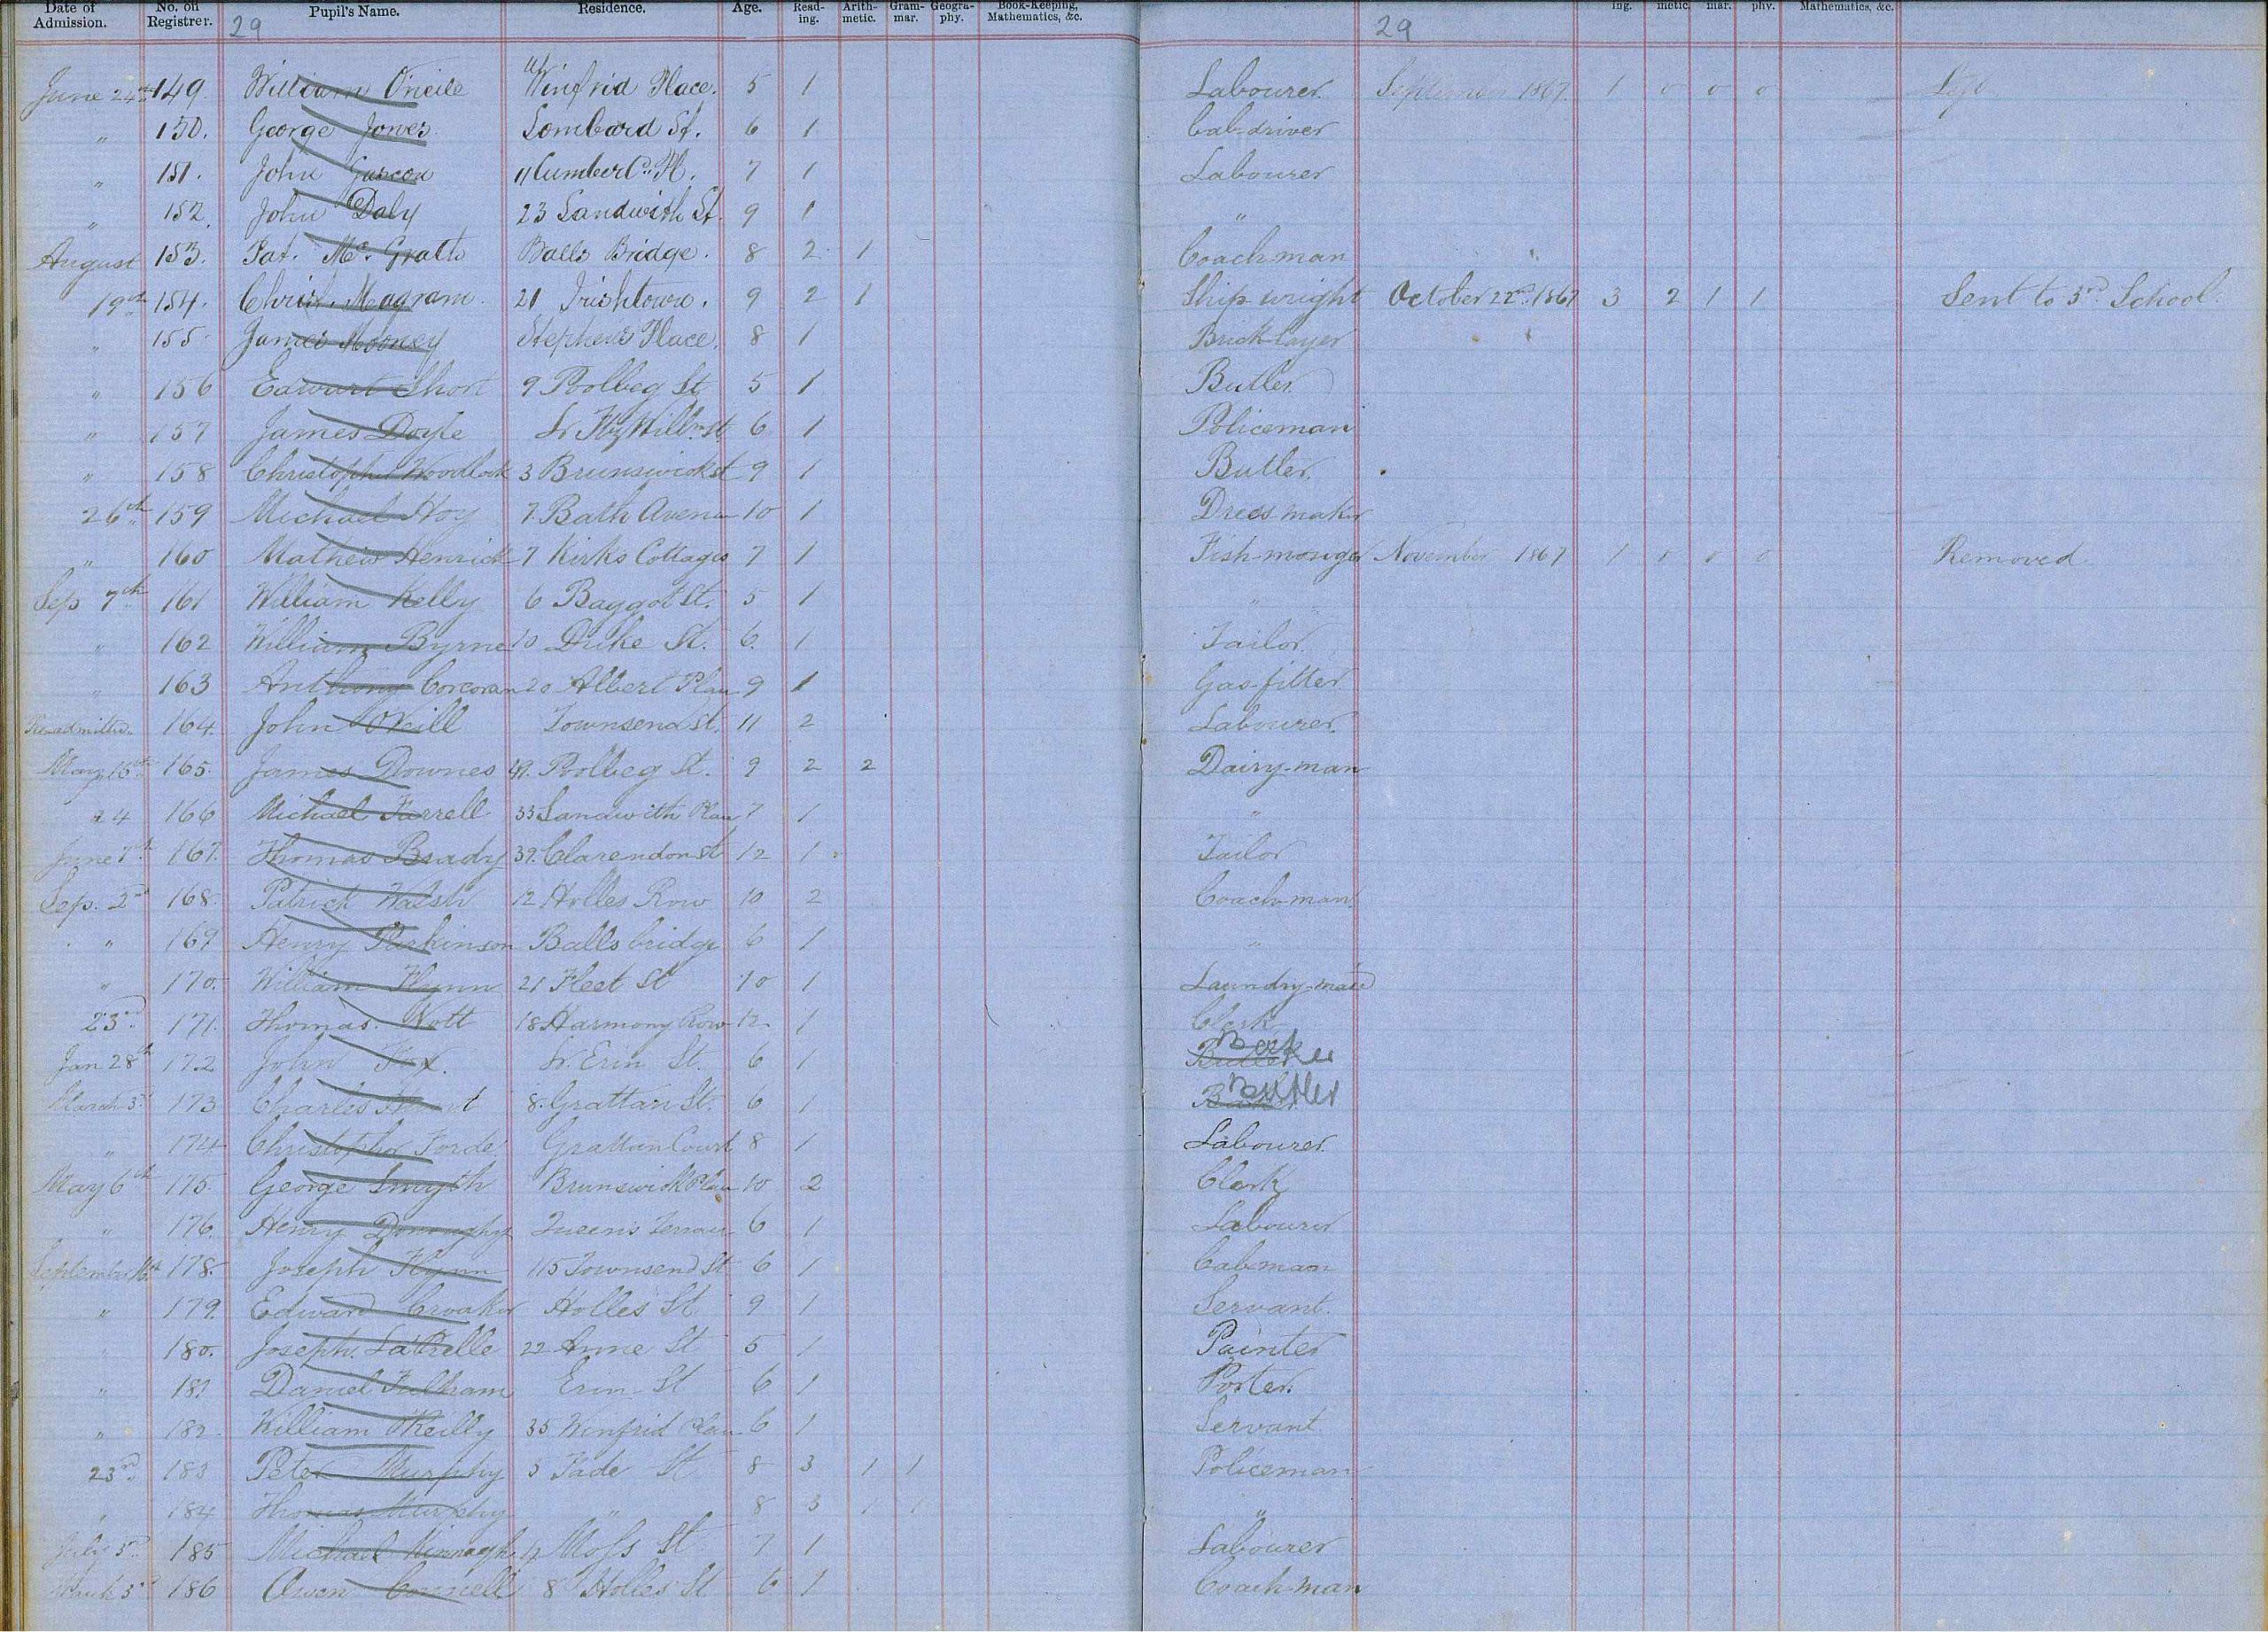 Date of Admission. No. on Registrer. Pupil's Name. Residence. Age. Read-ing. Arith-metic. Gram-mar. Geogra-phy. Book-Keeping, Mathematics, &c. ing. metic. mar. phy. Mathematics, &c.
29 29
June 24th 149. William O'neile 11 Winfrid Place. 5 1 Labourer. September 1867. 1 0 0 0 Left
" 150. George Jones. Lombard St. 6 1 Cab-driver
" 151. John 11 Cumberld. Pl. 7 1 Labourer
" 152. John Daly 23 Sandwith St. 9 1 "
August 153. Pat. Mc. Grath Balls Bridge. 8 2 1 Coachman
19th 154. Christ. Magram. 21 Irishtown. 9 2 1 Ship-wright October 22nd. 1867 3 2 1 1 Sent to 3rd School.
" 155. James Mooney Stephens Place. 8 1 Brick-layer
" 156 Edward Short 9 Poolbeg St. 5 1 Butler.
" 157 James Doyle 6 1 Policeman
" 158 Christopher Woodlock 3 Brunswick st 9 1 Butler.
26th " 159 Michael Hoy 7. Bath Avenu 10 1 Dress maker
" 160 Mathew Henrick 7 Kirks Cottages 7 1 Fish-monger November 1867 1 0 0 0 Removed
Sep 7th 161 William Kelly 6 Baggot St. 5 1 "
" 162 William Byrne 10 Duke St. 6. 1 Tailor.
" 163 Anthony Corcoran 20 Albert Plac 9 1 Gas-fitter
Re-admitted. 164. John O'Neill Townsend St. 11 2 Labourer.
May 165. James Downes 49. Poolbeg St. 9 2 2 Dairy-man
24 166 Michael Farrell 33 Sandwith Plac 7 1 "
June 7th 167. Thomas Brady 39. Clarendon st 12 1 Tailor
Sep. 2nd 168. Patrick Walsh 12 Holles Row 10 2 Coach-man
" 169 Henry Parkinson Ballsbridge 6 1 "
" 170. William Flynn 21 Fleet St 10 1 Laundry-maid
23rd 171. Thomas. Nott 18 Harmony Row 12 1 Clerk
Jan 28th 172 John Fox. Lr. Erin St. 6 1 Butler Baker
March 3rd 173 Charles 8. Grattan St. 6 1 Baker Buttler
" 174 Christopher Forde. Grattan Court 8 1 Labourer.
May 6th 175. George Smyth Brunswick Plac 10 2 Clerk
" 176. Henry Donoughy Queens Terrace 6 1 Labourer
September 16th 178. Joseph Flynn 115 Townsend St 6 1 Cab-man
" 179. Edward Croaker Holles St 9 1 Servant.
180. Joseph. LaBelle 22 Anne St 5 1 Painter
" 181 Daniel Fulham Erin St 6 1 Porter.
" 182. William O'Reilly 35 Winfrid Plac 6 1 Servant
23rd. 183 Peter Murphy 3 Fade St 8 3 1 1 Policeman
" 184 Thomas Murphy " 8 3 1 1 "
July 5th. 185 Michael Moss St 7 1 Labourer
March 3rd 186 Owen Connell 8 Holles St 6 1 Coach-man